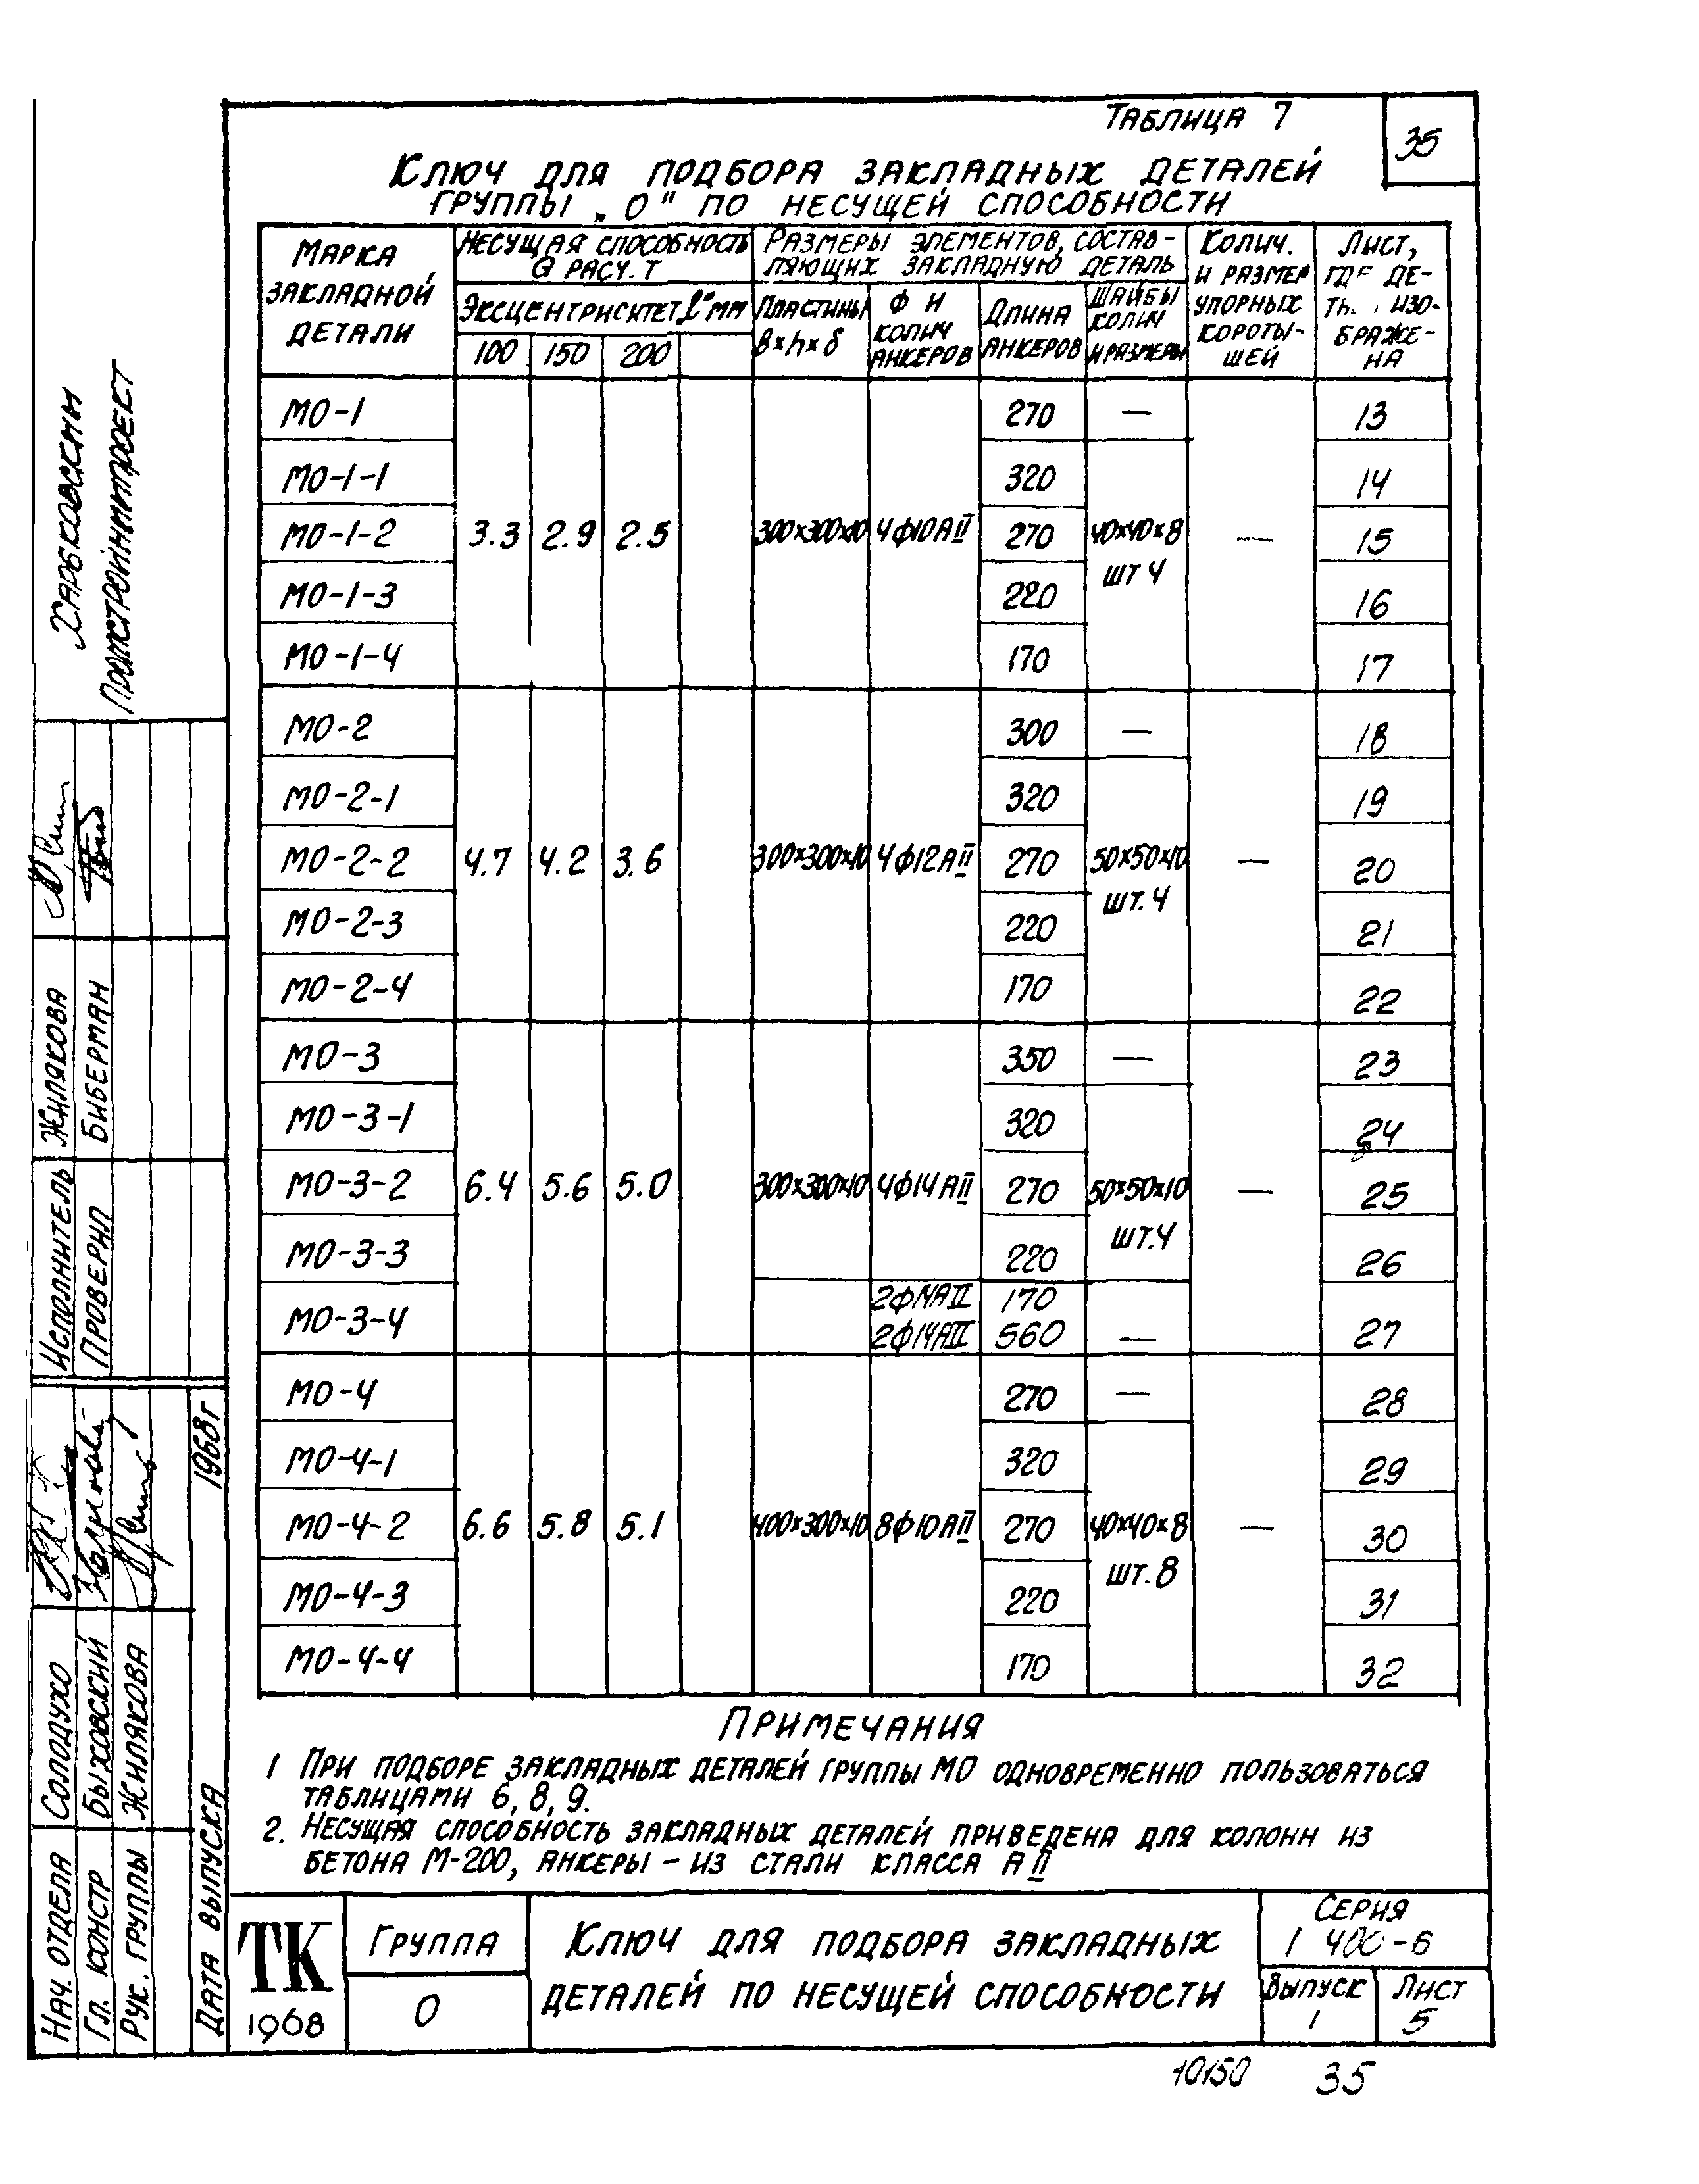 Таблица 7
35
Ключ для подбора закладных деталей
группы „О" по несущей способности
Марка закладной детали
Несущая способность Q расч. т
Эксцентриситет ℓ" мм
100 150 200
Размеры элементов, составляющих закладную деталь
Пластины в×h×δ
Ф и колич анкеров
Длина анкеров
Шайбы колич и размеры
Колич. и размер упорных коротышей
Лист, где изображена
МО-1 270 — 13
МО-1-1 320 14
МО-1-2 3.3 2.9 2.5 300×300×10 4ф10АII 270 40×40×8 — 15
шт 4
МО-1-3 220 16
МО-1-4 170 17
МО-2 300 — 18
МО-2-1 320 19
МО-2-2 4.7 4.2 3.6 300×300×10 4ф12АII 270 50×50×10 — 20
шт. 4
МО-2-3 220 21
МО-2-4 170 22
МО-3 350 — 23
МО-3-1 320 24
МО-3-2 6.4 5.6 5.0 300×300×10 4ф14АII 270 50×50×10 — 25
шт. 4
МО-3-3 220 26
2ф14АII 170
МО-3-4 2ф14АII 560 — 27
МО-4 270 — 28
МО-4-1 320 29
МО-4-2 6.6 5.8 5.1 400×300×10 8ф10АII 270 40×40×8 — 30
шт. 8
МО-4-3 220 31
МО-4-4 170 32
Примечания
1 При подборе закладных деталей группы МО одновременно пользоваться
таблицами 6, 8, 9.
2. Несущая способность закладных деталей приведена для колонн из
бетона М-200, анкеры – из стали класса АII
ТК
1968
Группа
О
Ключ для подбора закладных
деталей по несущей способности
Серия
1 400-6
Выпуск
1
Лист
5
10150 35
Харьковский
Промстройниипроект
Исполнитель Жилякова
Проверил Биберман
Нач. отдела Солодухо
Гл. констр Быховский
Рук. группы Жилякова
Дата выпуска 1968г